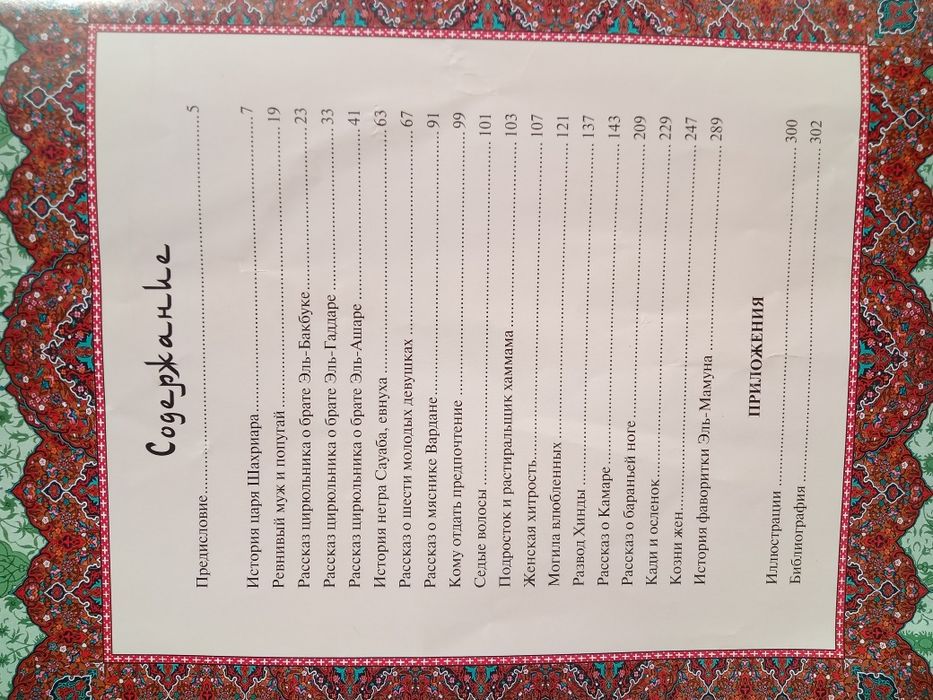 Содержание
Предисловие 5
История царя Шахриара 7
Ревнивый муж и попугай 19
Рассказ цирюльника о брате Эль-Бакбуке 23
Рассказ цирюльника о брате Эль-Гаддаре 33
Рассказ цирюльника о брате Эль-Ашаре 41
История негра Сауаба, евнуха 63
Рассказ о шести молодых девушках 67
Рассказ о мяснике Вардане 91
Кому отдать предпочтение 99
Седые волосы 101
Подросток и растиральщик хаммама 103
Женская хитрость 107
Могила влюбленных 121
Развод Хинды 137
Рассказ о Камаре 143
Рассказ о бараньей ноге 209
Кади и осленок 229
Козни жен 247
История фаворитки Эль-Мамуна 289
ПРИЛОЖЕНИЯ
Иллюстрации 300
Библиография 302